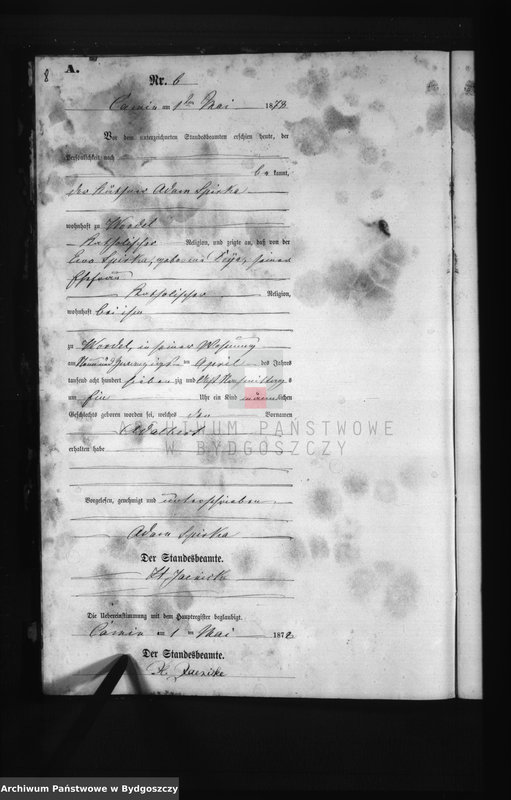 8
A.
Nr. 6
Camin am 1ten Mai 1878
Vor dem unterzeichneten Standesbeamten erschien heute, der
Persönlichkeit nach
be kannt,
der Käthner Adam Spirka
wohnhaft zu Wordel
katholischer Religion, und zeigte an, daß von der
Eva Spirka, geborene, seiner
Ehefrau
katholischer Religion,
wohnhaft bei ihm
zu Wordel, in seiner Wohnung
am neunundzwanzigsten April des Jahres
tausend acht hundert siebenzig und acht Nachmittags
um fünf Uhr ein Kind männlichen
Geschlechts geboren worden sei, welches den Vornamen
Adalbert
erhalten habe
ARCHIWUM PAŃSTWOWE
W BYDGOSZCZY
Vorgelesen, genehmigt und unterschrieben
Adam Spirka
Der Standesbeamte.
Die Uebereinstimmung mit dem Hauptregister beglaubigt.
Camin am 1 ten Mai 1878
Der Standesbeamte.
Archiwum Państwowe w Bydgoszczy